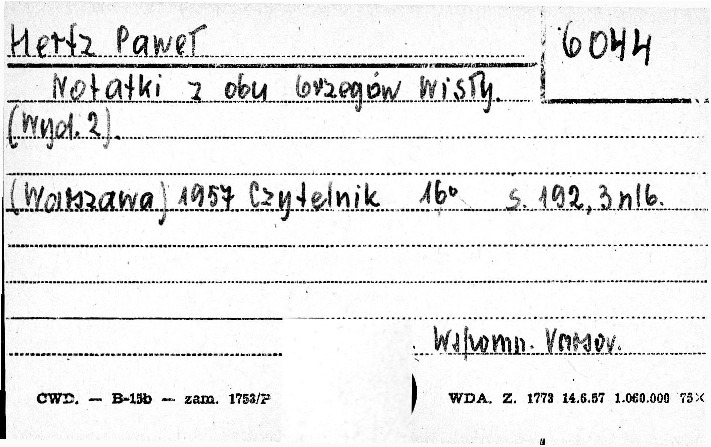 Hertz Paweł 6044
Notatki z obu brzegów Wisły.
(Wyd. 2).
(Warszawa) 1957 Czytelnik 16° s. 192, 3 nlb.
Wspomn. Varsov.
CWD. — B-15b — zam. 1753/P WDA. Z. 1773 14.6.57 1.060.000 75×